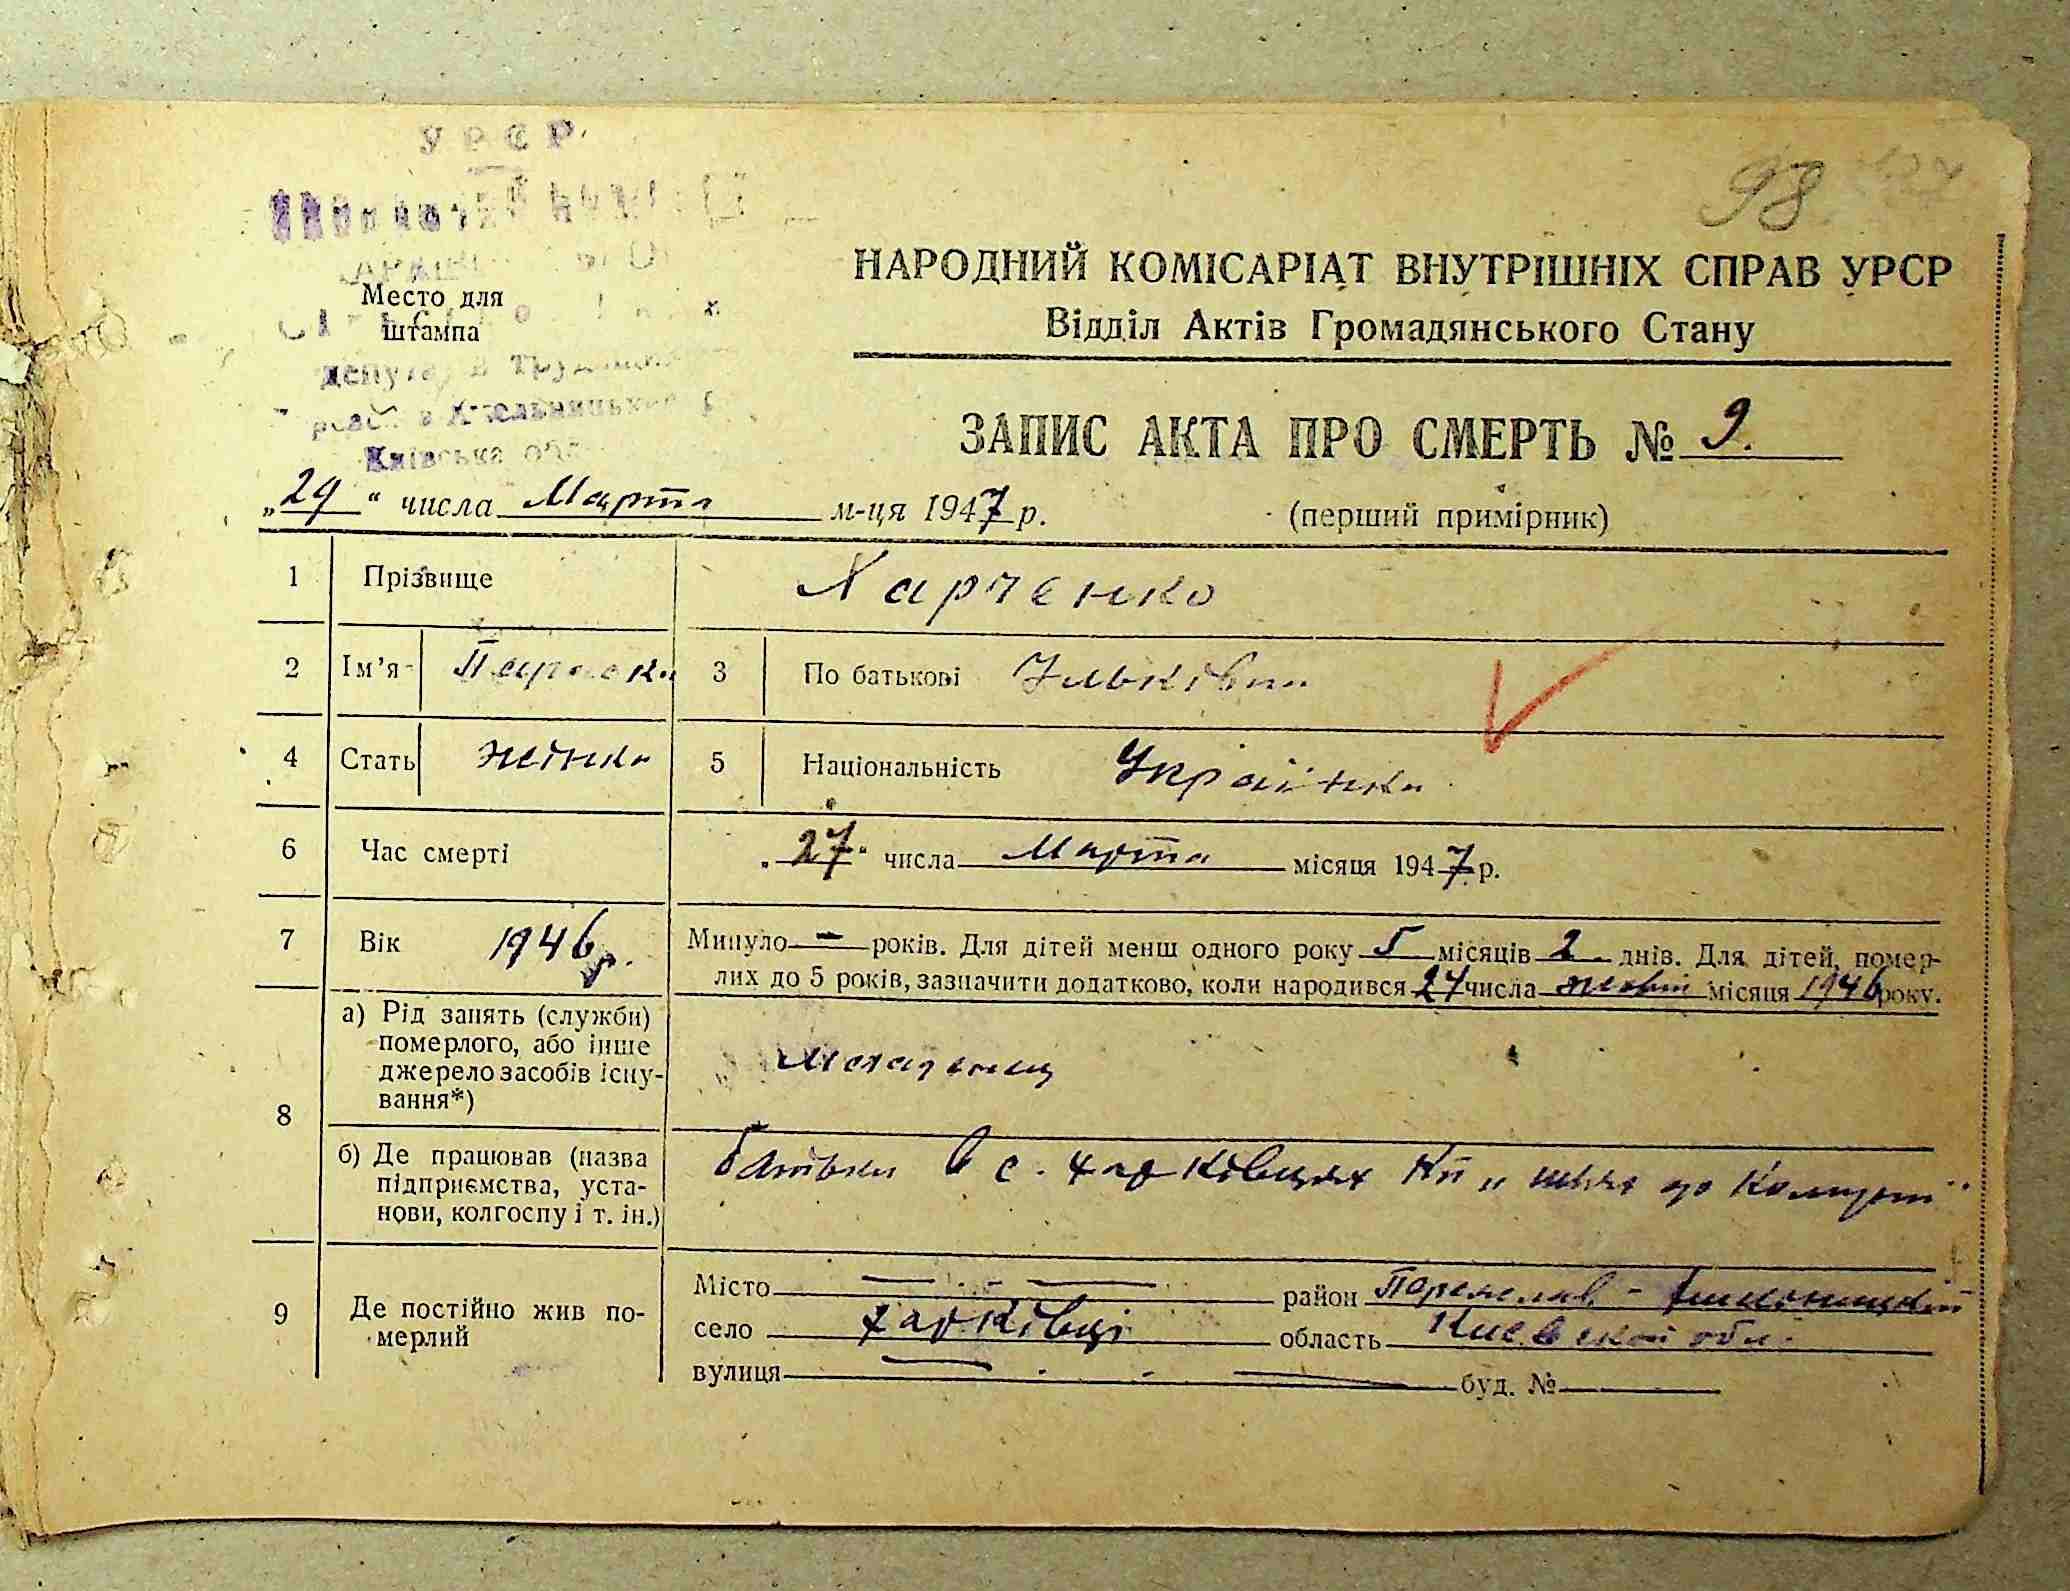 УРСР
98
НАРОДНИЙ КОМІСАРІАТ ВНУТРІШНІХ СПРАВ УРСР
Место для
штампа
Відділ Актів Громадянського Стану
ЗАПИС АКТА ПРО СМЕРТЬ № 9.
Київська обл
„29“ числа Марта м-ця 1947 р. (перший примірник)
1 Прізвище Харченко
2 Ім’я Параска 3 По батькові Ільківна
4 Стать жінка 5 Національність Українка
6 Час смерті „27“ числа Марта місяця 1947 р.
7 Вік 1946 р. Минуло – років. Для дітей менш одного року 5 місяців 2 днів. Для дітей, помер-
лих до 5 років, зазначити додатково, коли народився 24 числа жовт місяця 1946 року.
8 а) Рід занять (служби)
померлого, або інше
джерело засобів існу-
вання*)
б) Де працював (назва
підприємства, уста-
нови, колгоспу і т. ін.)
батьки в с. Харківцях Кп „шлях до
9 Де постійно жив по-
мерлий
Місто район Переяслав-Хмельницький
село Харківці область Киевской обл.
вулиця буд. №